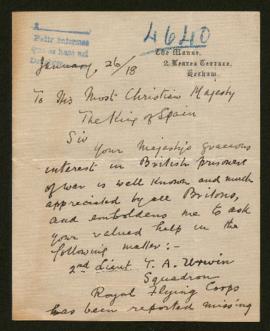 4640
A
Pedir informes
The Manse,
2, Leazes Terrace,
Hexham.
January, 26/18
To His Most Christian Majesty
The King of Spain
Sir
Your Majesty's gracious
interest in British prisoners
of war is well known and much
appreciated by all Britons,
and emboldens me to ask
your valued help in the
following matter:-
2nd Lieut T. A. Urwin
Squadron
Royal Flying Corps
has been reported missing